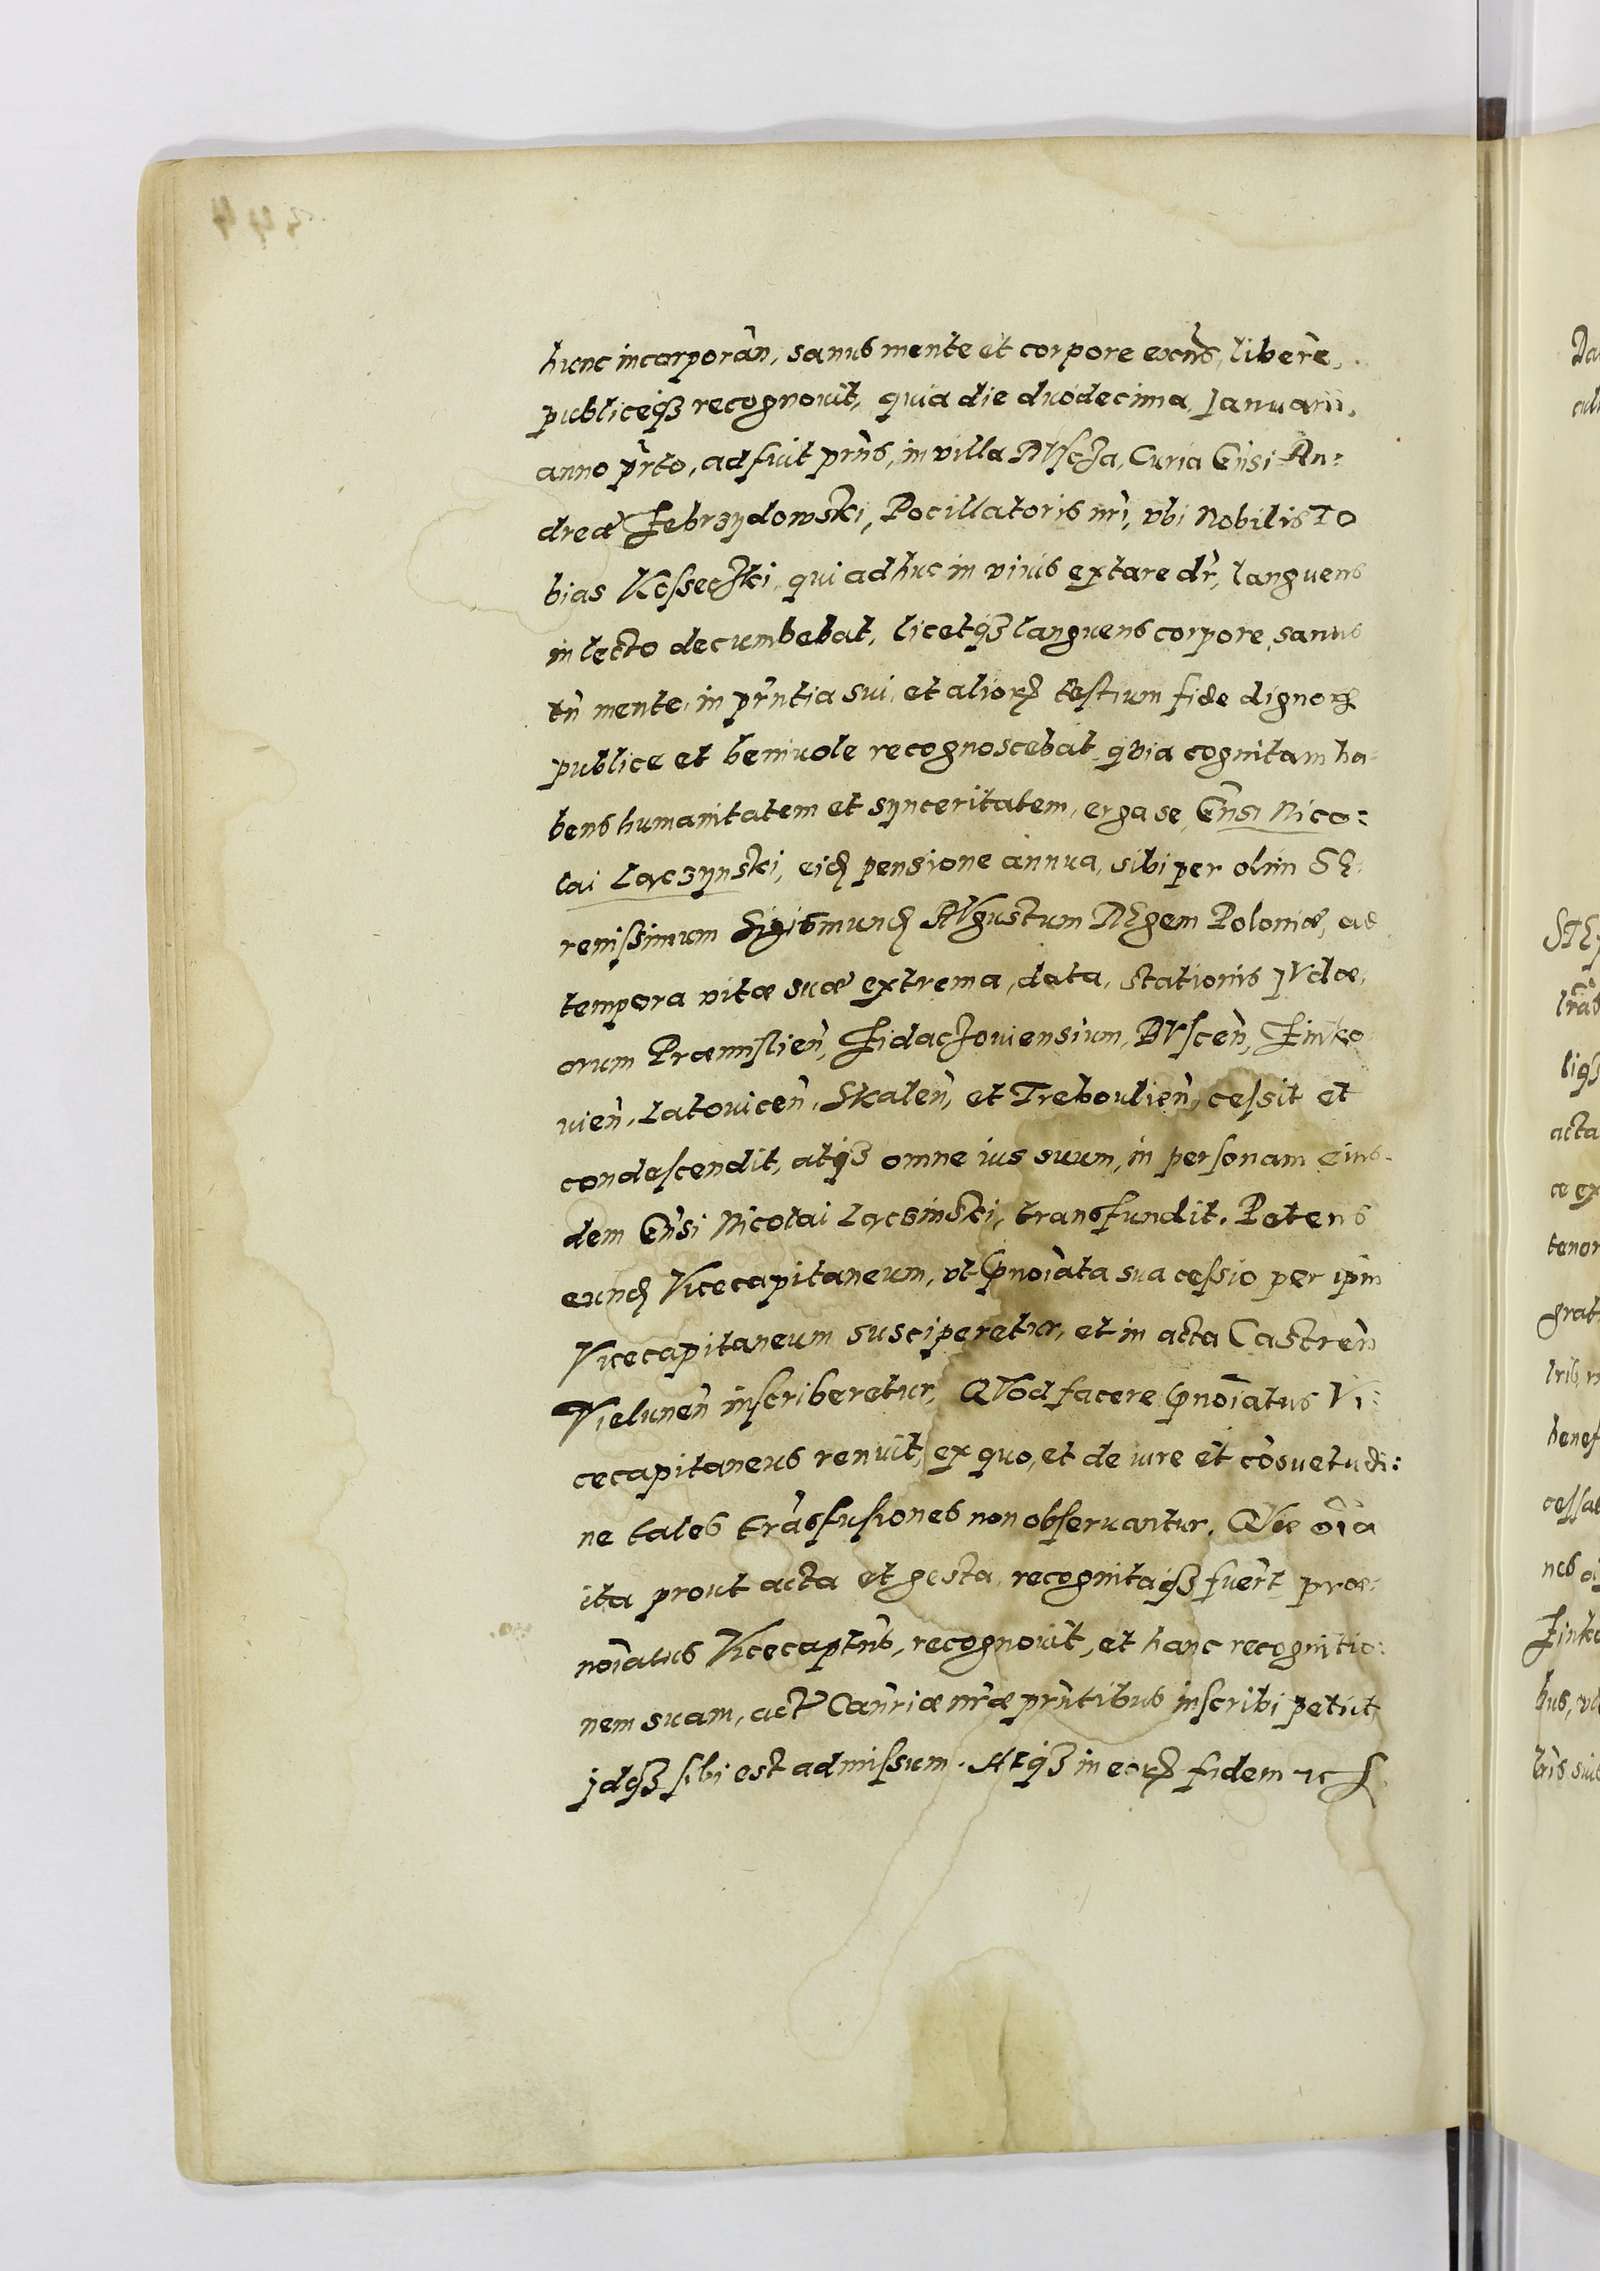 hunc incorporan̄, sanus mente et corpore exn̄s, libere,
publiceqꝫ recognouit, quia die duodecima Januarii,
anno pr̄to, adfuit prn̄s, in villa Ruscza, Curia Gn̄si An:
dreæ Zebrzydowski, Pocillatoris nr̄i, vbi Nobilis To
bias Kosseczki, qui adhuc in viuis extare dr̄, languens
in lecto decumbebat, licetqꝫ languens corpore, sanus
tn̄ mente, in prn̄tia sui, et alioꝝ testium fide dignoꝝ
publice et beniuole recognoscebat, quia cognitam ha-
bens humanitatem et synceritatem, erga se, Gn̄si Nico:
lai Łączynski, eid pensione annua, sibi per olim SE-
renissimum Sigismund AVgustum REgem Poloniæ, ad
tempora vitæ suæ extrema, data, stationis JVdæ,
orum Præmislien̄, Zidaczouiensium, BVscen̄, Zinko
uien̄, Latouicen̄, Skalen̄, et Treboulien̄, cessit et
condescendit, atqꝫ omne ius suum, in personam eius-
dem Gn̄si Nicolai Łączinski, transfundit. Petens
eund Vicecapitaneum, vt pnoīata sua cessio per ipm̄
Vicecapitaneum susciperetur, et in acta Castren̄
Vielunen̄ inscriberetur, QVod facere pnoīatus Vi:
cecapitaneus renuit, ex quo, et de iure et cōsuetudi:
ne tales trāsfusiones non obseruantur. QVæ oīa
ita prout acta et gesta, recognitaqꝫ fuer̄t præ:
noīatus Vicecaptn̄s, recognouit, et hanc recognitio:
nem suam, act Can̄riæ nr̄æ prn̄tibus inscribi petiit
jdqꝫ sibi est admissum. Atqꝫ in eoꝝ fidem ꝛc